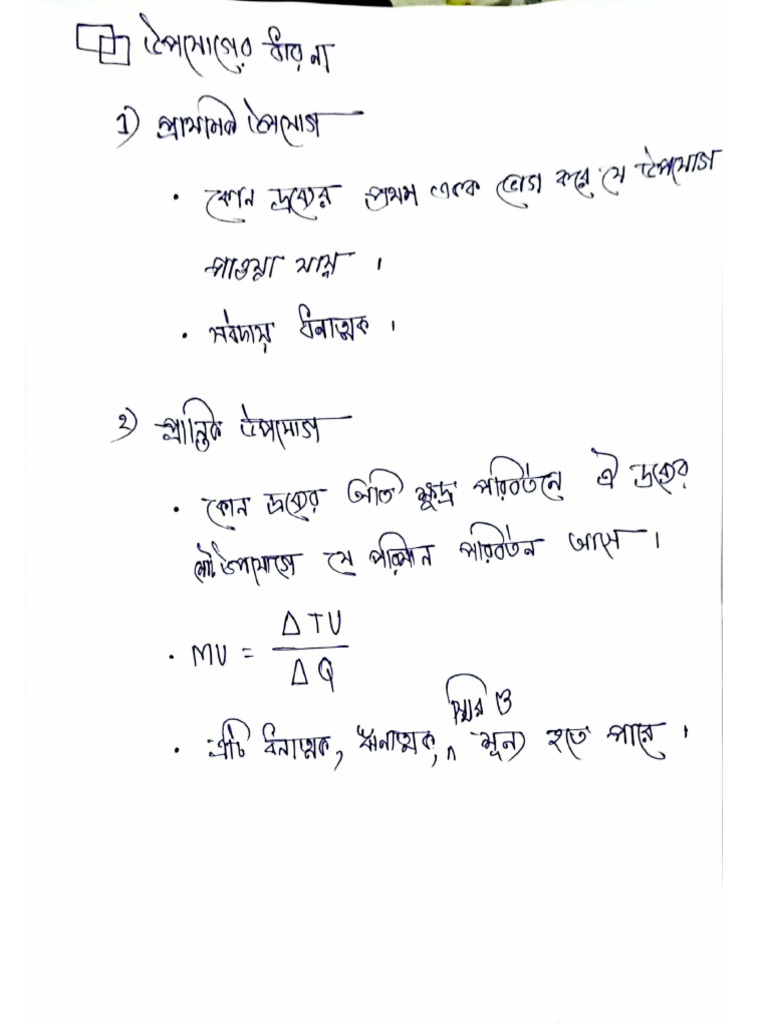 উপযোগের ধারনা
1) প্রাথমিক উপযোগ
• কোন দ্রব্যের প্রথম একক ভোগ করে যে উপযোগ
পাওয়া যায় ।
• সবদায় ধনাত্মক ।
২) প্রান্তিক উপযোগ
• কোন দ্রব্যের অতি ক্ষুদ্র পরিবর্তনে ঐ দ্রব্যের
মোট উপযোগে যে পরিমান পরিবর্তন আসে ।
• MU = ΔTU / ΔQ
স্থির ও
• এটি ধনাত্মক, ঋনাত্মক, শূন্য হতে পারে ।